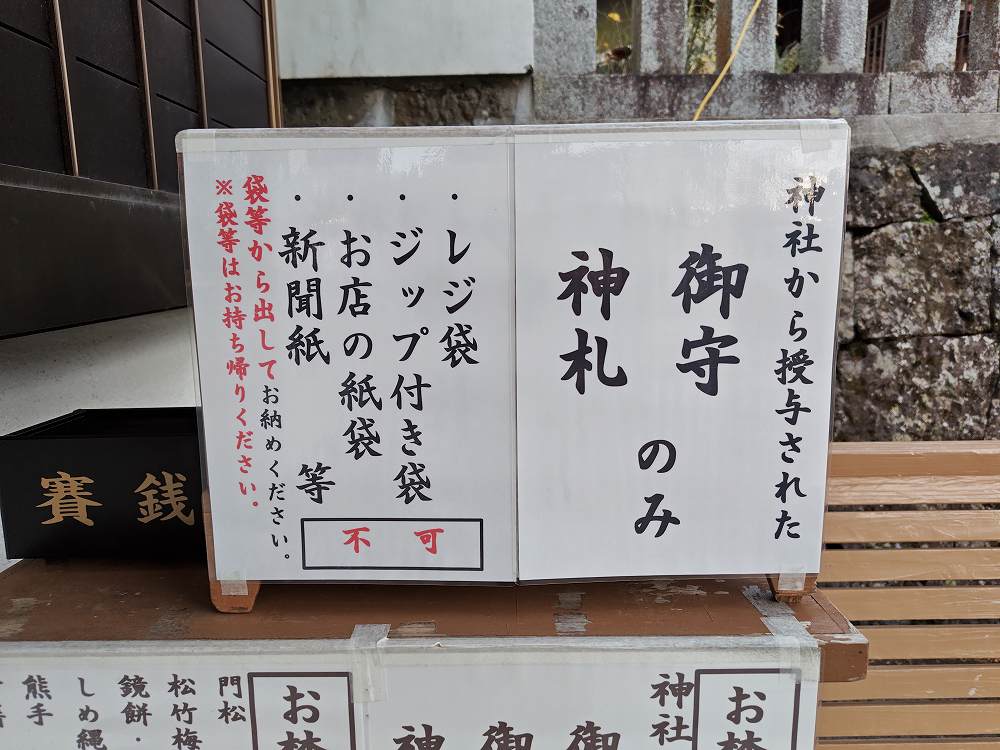 神社から授与された
御守
神札
のみ
・レジ袋
・ジップ付き袋
・お店の紙袋
・新聞紙 等
不可
袋等から出してお納めください。
※袋等はお持ち帰りください。
賽銭
お焚
神社
御
御
神
お焚
門松
松竹梅
鏡餅・
しめ縄
熊手